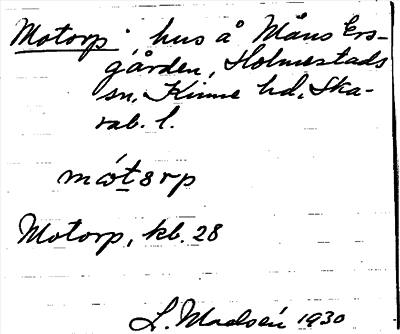 Motorp: hus å Måns Ers-
gården, Holmestads
sn, Kinne hd, Ska-
rab. l.
mótɜrp
Motorp, kb. 28
L. Madsén 1930